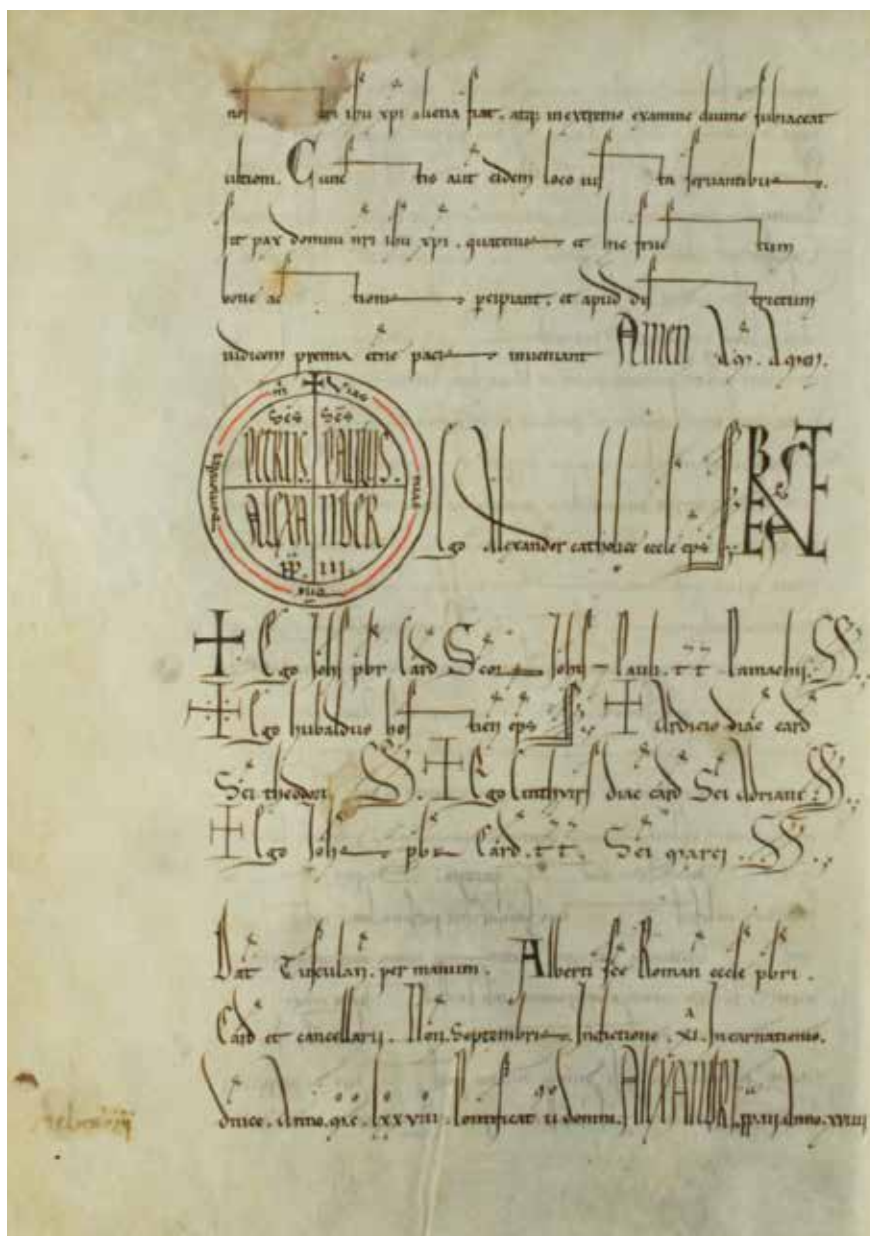 ihu xpi aliena fiat. atq; in extremo examine diuine subiaceat
ultioni. Cunctis aut eidem loco iusta seruantibus.
sit pax domini nri ihu xpi. quatinus et hic fructum
bone actionis percipiant. et apud districtum
iudicem premia etne pacis inueniant AMEN
Scs Scs
PETRUS. PAULUS.
ALEXANDER
PP. III.
Ego Alexander catholice eccle eps
BENEVALETE
Ego Iohs pbr Card Scor Iohis Pauli. tt Pamachij.
Ego hubaldus hostien eps Ardicio diac card
Sci theodori Ego Cinthyus diac card Sci Adriani
Ego Iohs pbr Card. tt. Sci marci
Dat Tusculan. per manum. Alberti sce Roman eccle pbri.
Card et cancellarij. Non. Septembris Indictione. XI. Incarnationis.
dnice. Anno. Lxxviii. Pontificat u domni. ALEXANDRI. pp. iii. Anno. xviiii